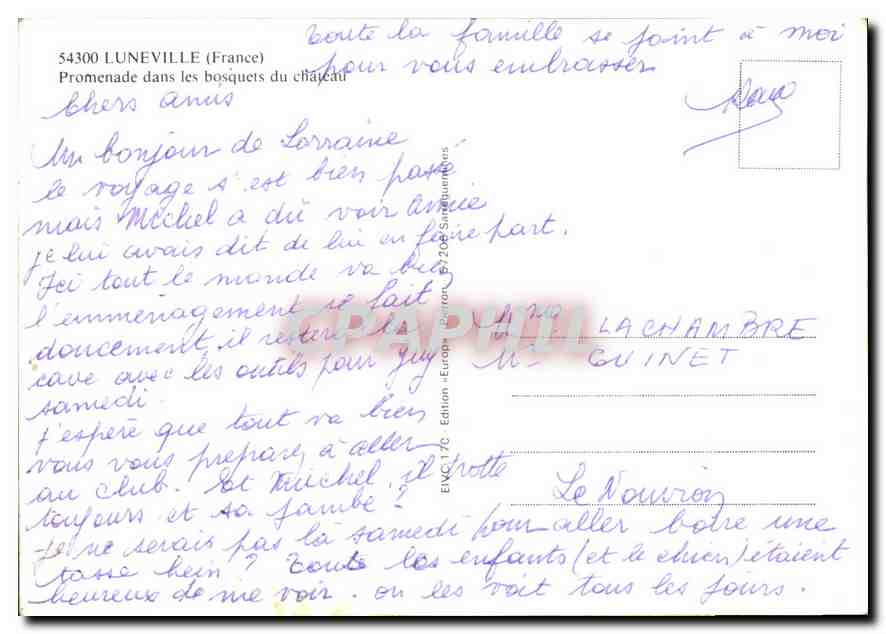 54300 LUNEVILLE (France)
Promenade dans les bosquets du château
Chers amis
Un bonjour de Lorraine
le voyage s'est bien passé
mais Michel a dû voir Annie
je lui avais dit de lui en faire part.
Ici tout le monde va bien
l'emménagement se fait
doucement, il restera la
cave avec les outils pour Guy
samedi.
j'espère que tout va bien
vous vous preparez à aller
au club. et Michel, il trotte
toujours et sa jambe?
je ne serais pas là samedi pour aller boire une
tasse hein? Toute les enfants (et le chien) étaient
heureux de me voir. on les voit tous les jours.
toute la famille se joint à moi
pour vous embrasser
EIVC 17C - Edition «Europ» Pierron - 57206 Sarreguemines
Mme LACHAMBRE
Mr GUINET
Le Nouvion
CPAPHIL